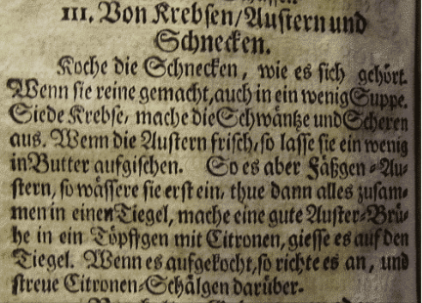 III. Von Krebsen/Austern und
Schnecken.
Koche die Schnecken, wie es sich gehört.
Wenn sie reine gemacht, auch in ein wenig Suppe.
Siede Krebse, mache die Schwäntze und Scheren
aus. Wenn die Austern frisch, so lasse sie ein wenig
in Butter aufgischen. So es aber Fäßgen-Au-
stern, so wässere sie erst ein, thue dann alles zusam-
men in einen Tiegel, mache eine gute Auster-Brü-
he in ein Töpffgen mit Citronen, giesse es auf den
Tiegel. Wenn es aufgekocht, so richte es an, und
streue Citronen-Schälgen darüber.